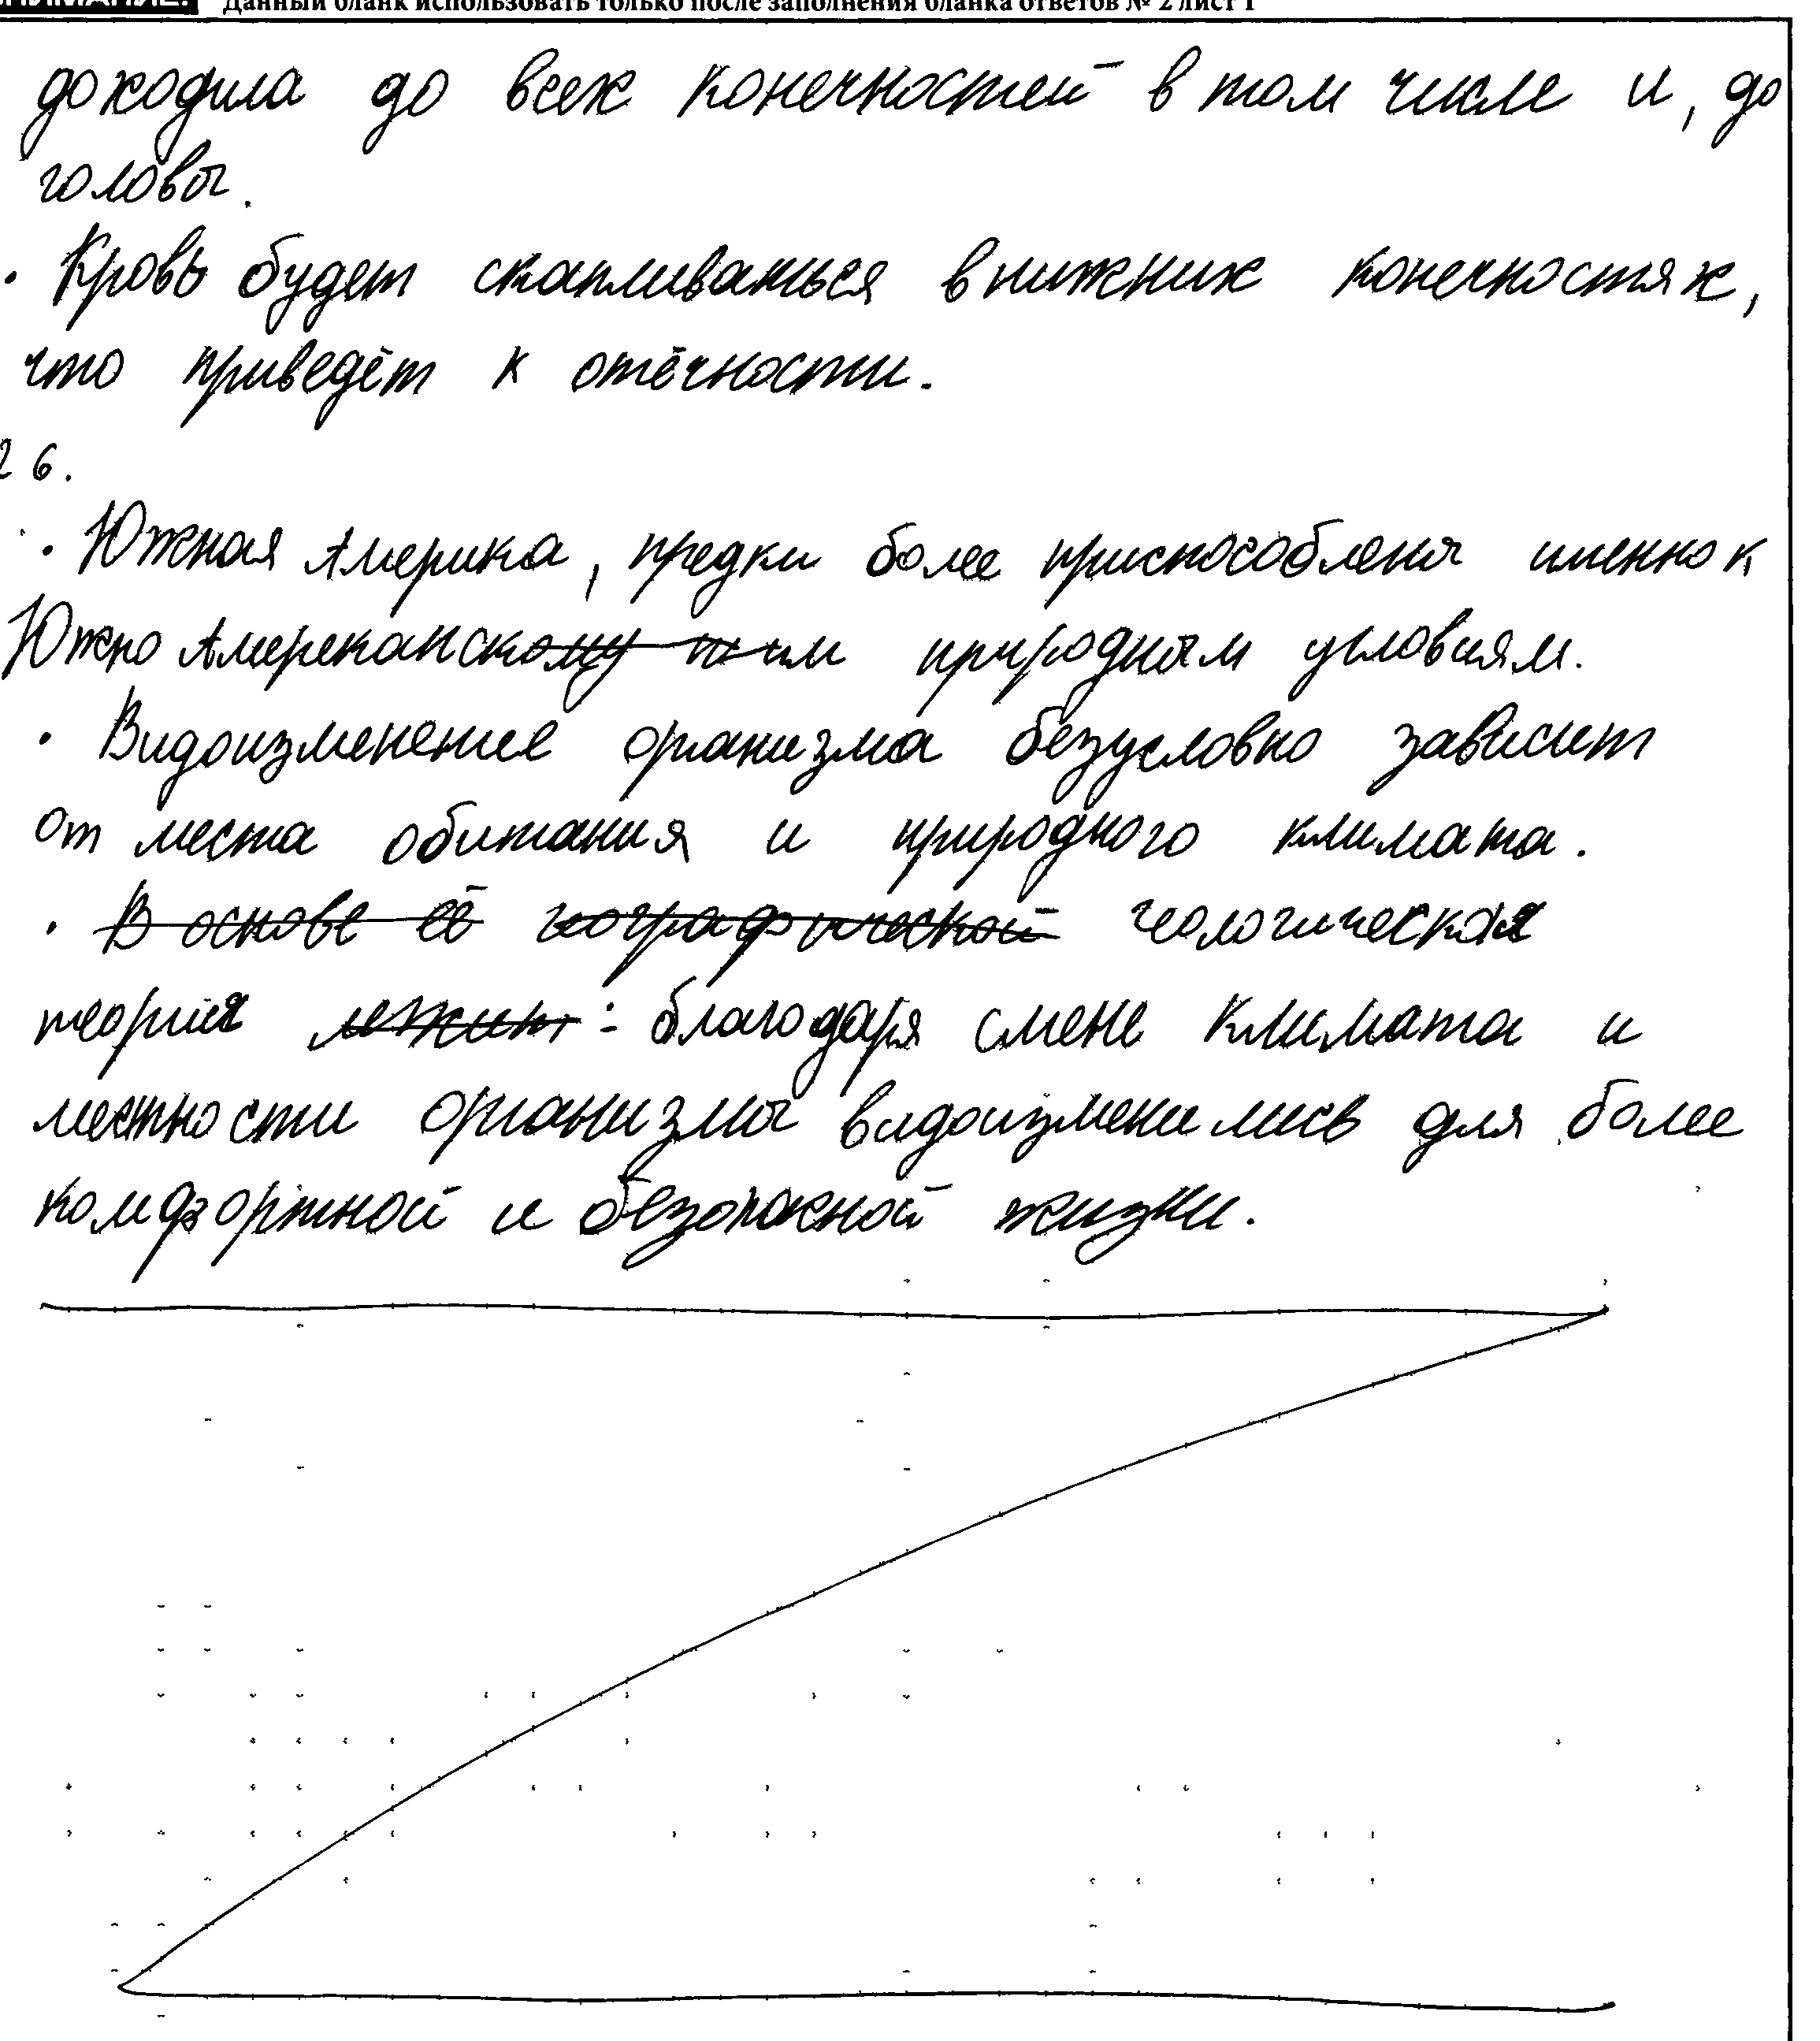 ВНИМАНИЕ! Данный бланк использовать только после заполнения бланка ответов № 2 лист 1
доходила до всех конечностей в том числе и, до
головы.
· Кровь будет скапливаться в нижних конечностях,
что приведёт к отёчности.
26.
· Южная Америка, предки более приспособленя именно к
Южно Американским природным условиям.
· Видоизменение организма безусловно зависит
от места обитания и природного климата.
· В основе её географической геологическая
теория лежит: благодаря смене климата и
местности организмы видоизменились для более
комфортной и безопасной жизни.